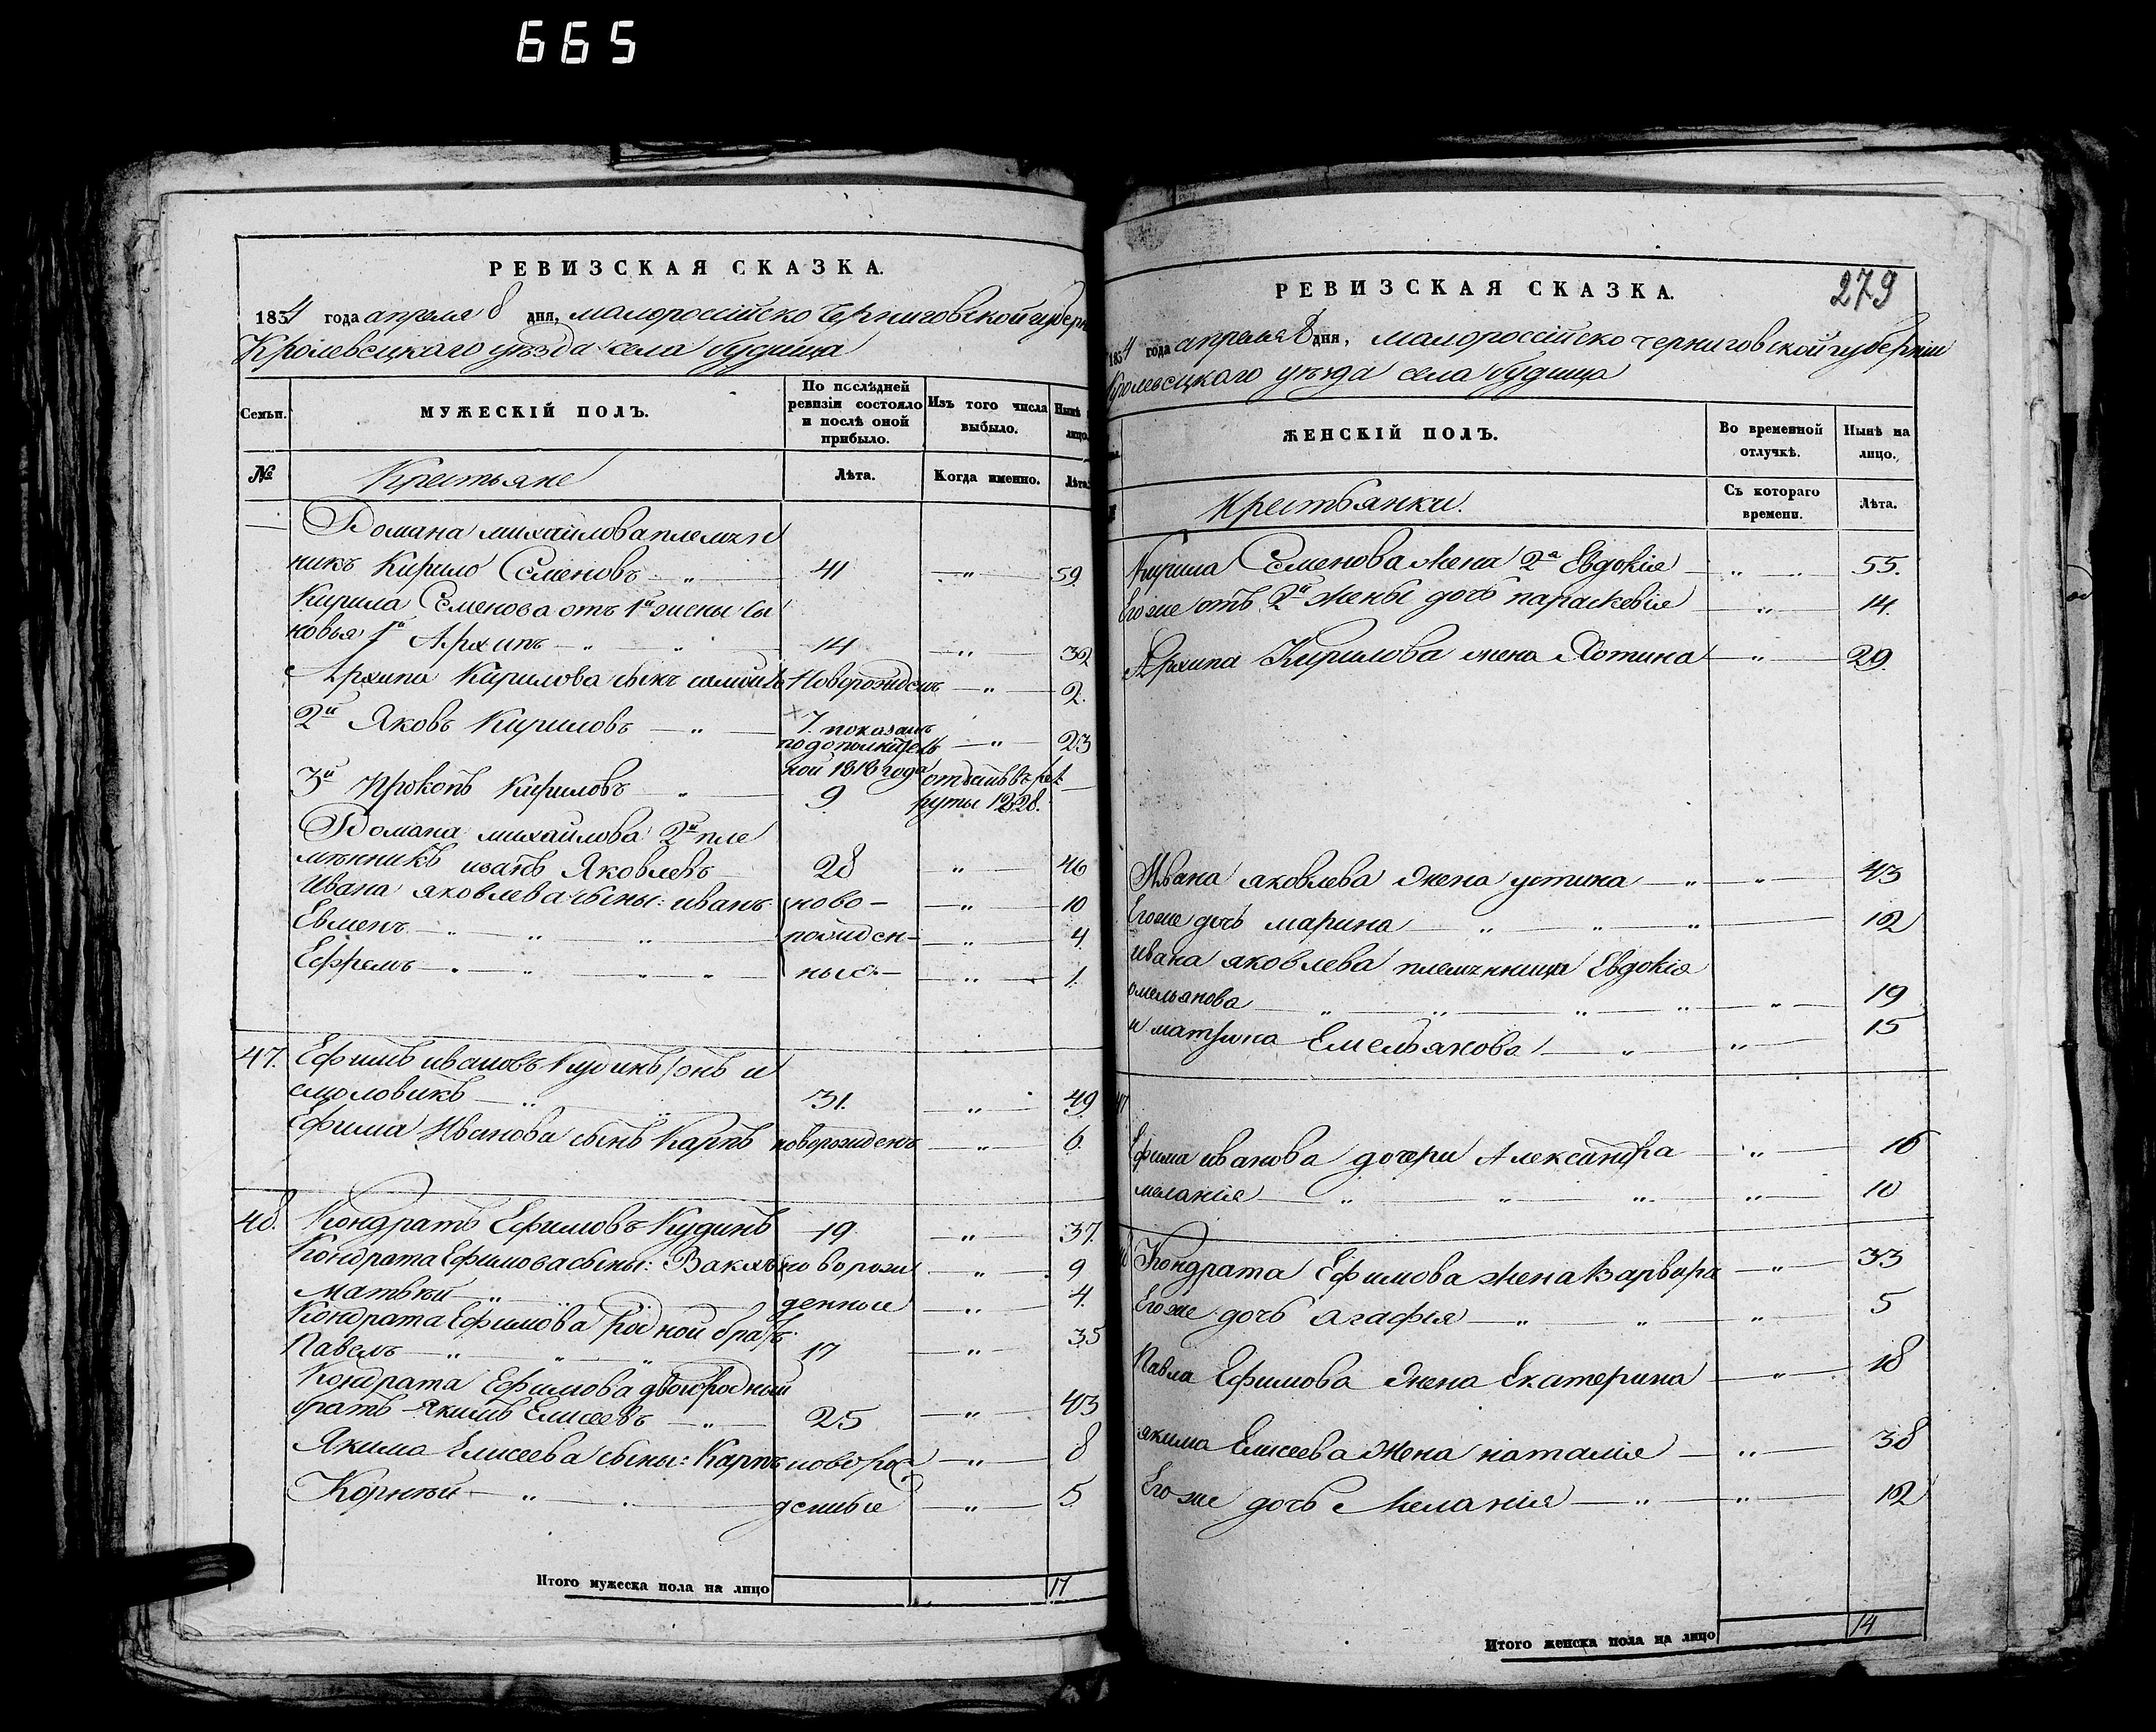 665
РЕВИЗСКАЯ СКАЗКА.
1834 года апреля 8 дня, малороссійско Черниговской губерн
Кролевецкаго уѣзда села Будища
Семьи.
МУЖЕСКІЙ ПОЛЪ.
По послѣдней ревизіи состояло и послѣ оной прибыло.
Изъ того числа выбыло.
Нынѣ лицо.
№
Крестьяне
Лѣта.
Когда именно.
Лѣта.
Домана михайлова племян
никъ Кирило Семеновъ 41 59.
Кирила Семенова отъ 1й жены сы
новья 1й Архипъ 14 32
Архипа Кирилова сынъ самойлъ Новорожденъ 2.
2й Яковъ Кириловъ 7. показанъ 23
по дополнитель
ной 1818 года
3й Прокопъ Кириловъ 9 отданъ въ рек
руты 1828.
Домана михайлова 2й пле
мянникъ иванъ Яковлевъ 28 46
Ивана яковлева сыны: иванъ ново- 10
Евменъ рожден- 4.
Ефремъ ные 1.
47. Ефимъ ивановъ Кудинъ онъ и
смоловикъ 31. 49
Ефима Иванова сынъ Карпъ новорожденъ 6.
48. Кондратъ Ефимовъ Кудинъ 19 37.
Кондрата Ефимова сыны: новорож 9
Матвѣй денные 4.
Кондрата Ефимова родной братъ
Павелъ 17 35
Кондрата Ефимова двоюродный
братъ Якимъ Елисеевъ 25 43
Якима Елисеева сыны: Карпъ новорож 8
Корнѣй денные 5.
Итого мужеска пола на лицо 17
279
РЕВИЗСКАЯ СКАЗКА.
1834 года апреля 8 дня, малороссійско черниговской губерніи
Кролевецкаго уѣзда села Будища
ЖЕНСКІЙ ПОЛЪ.
Во временной отлучкѣ.
Нынѣ на лицо.
Крестьянки.
Съ котораго времени.
Лѣта.
Кирила Семенова жена 2я Евдокія 55.
Его же отъ 2й жены дочь параскевія 14.
Архипа Кирилова жена Хотина 29.
Ивана яковлева жена устина 43
Его же дочь марина 12
ивана яковлева племянница Евдокія
омельянова 19
и матрина Емельянова 15
47
Ефима иванова дочери Александра 16
меланія 10
Кондрата Ефимова жена Варвара 33
Его же дочь агафія 5
Павла Ефимова жена Екатерина 18
якима Елисеева жена наталія 38
Его же дочь Меланія 12
Итого женска пола на лицо 14